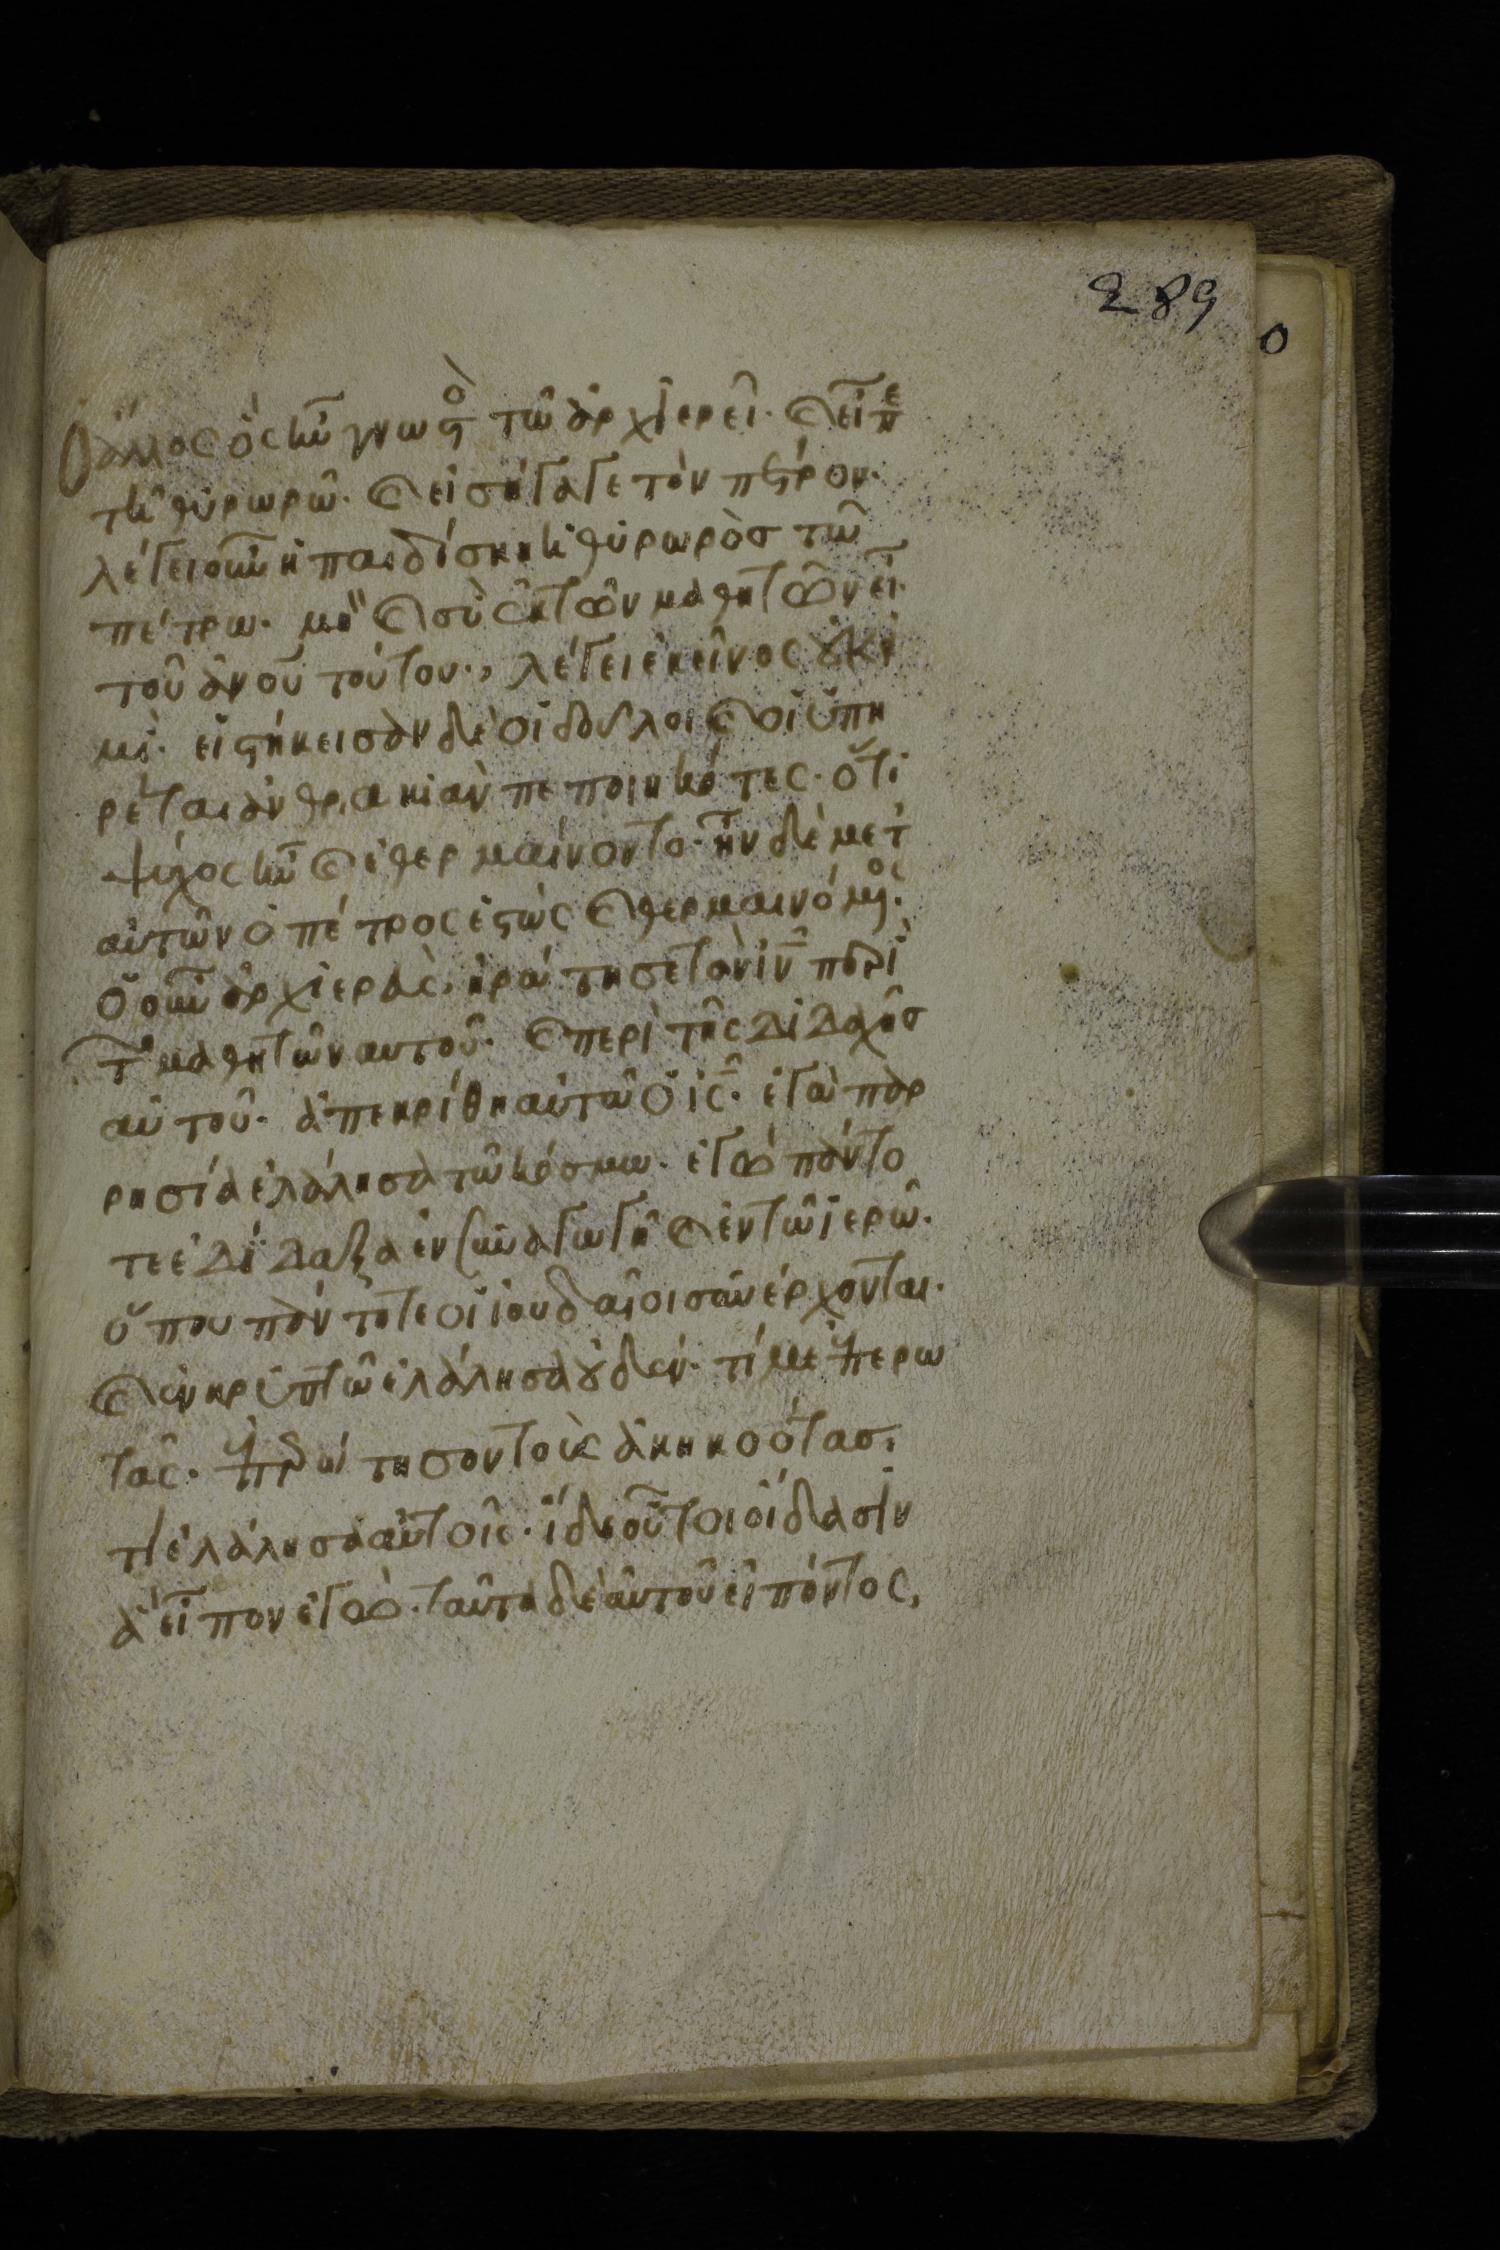 289
ο
ὁ ἄλλος ὃς ἦν γνωστὸς τῶ ἀρχιερεῖ. καὶ εἶπε
τῆ θυρωρῶ. καὶ εἰσήγαγε τὸν πέτρον.
λέγει οὖν ἡ παιδίσκη ἡ θυρωρὸσ τῶ
πέτρω. μὴ καὶ σὺ ἐκ τῶν μαθητῶν εἶ
τοῦ ἀνου τούτου., λέγει ἐκεῖνος οὐκ εἰ
μὶ. εἱστήκεισαν δὲ οἱ δοῦλοι καὶ οἱ ὑπη
ρέται ἀνθρακιὰν πεποιηκότες. ὅτι
ψύχος ἦν καὶ ἐθερμαίνοντο. ἦν δὲ μετ
αὐτῶν ὁ πέτρος ἑστὼς καὶ θερμαινόμενος.
Ὁ οὖν ἀρχιερεὺς, ἠρώτησε τὸν ιν περὶ
τῶν μαθητῶν αυτοῦ. καὶ περὶ τῆς διδαχῆσ
αὐτοῦ. ἀπεκρίθη αὐτῶ ὁ ις. ἐγὼ παρ
ρησία ἐλάλησα τῶ κόσμω. ἐγὼ πάντο
τε ἐδίδαξα ἐν συναγωγῆ καὶ ἐν τῶ ἱερῶ.
ὅπου πάντοτε οἱ ἰουδαῖοι συνέρχονται.
καὶ ἐν κρυπτῶ ἐλάλησα οὐδέν. τί με ἐπερω
τᾶς. ἐπερώτησον τοὺς ἀκηκοότασ.
τί ἐλάλησα αὐτοῖς. ἴδε οὗτοι οἴδασιν
ἃ εἶπον ἐγὼ. ταῦτα δὲ αὐτοῦ εἰπόντος,